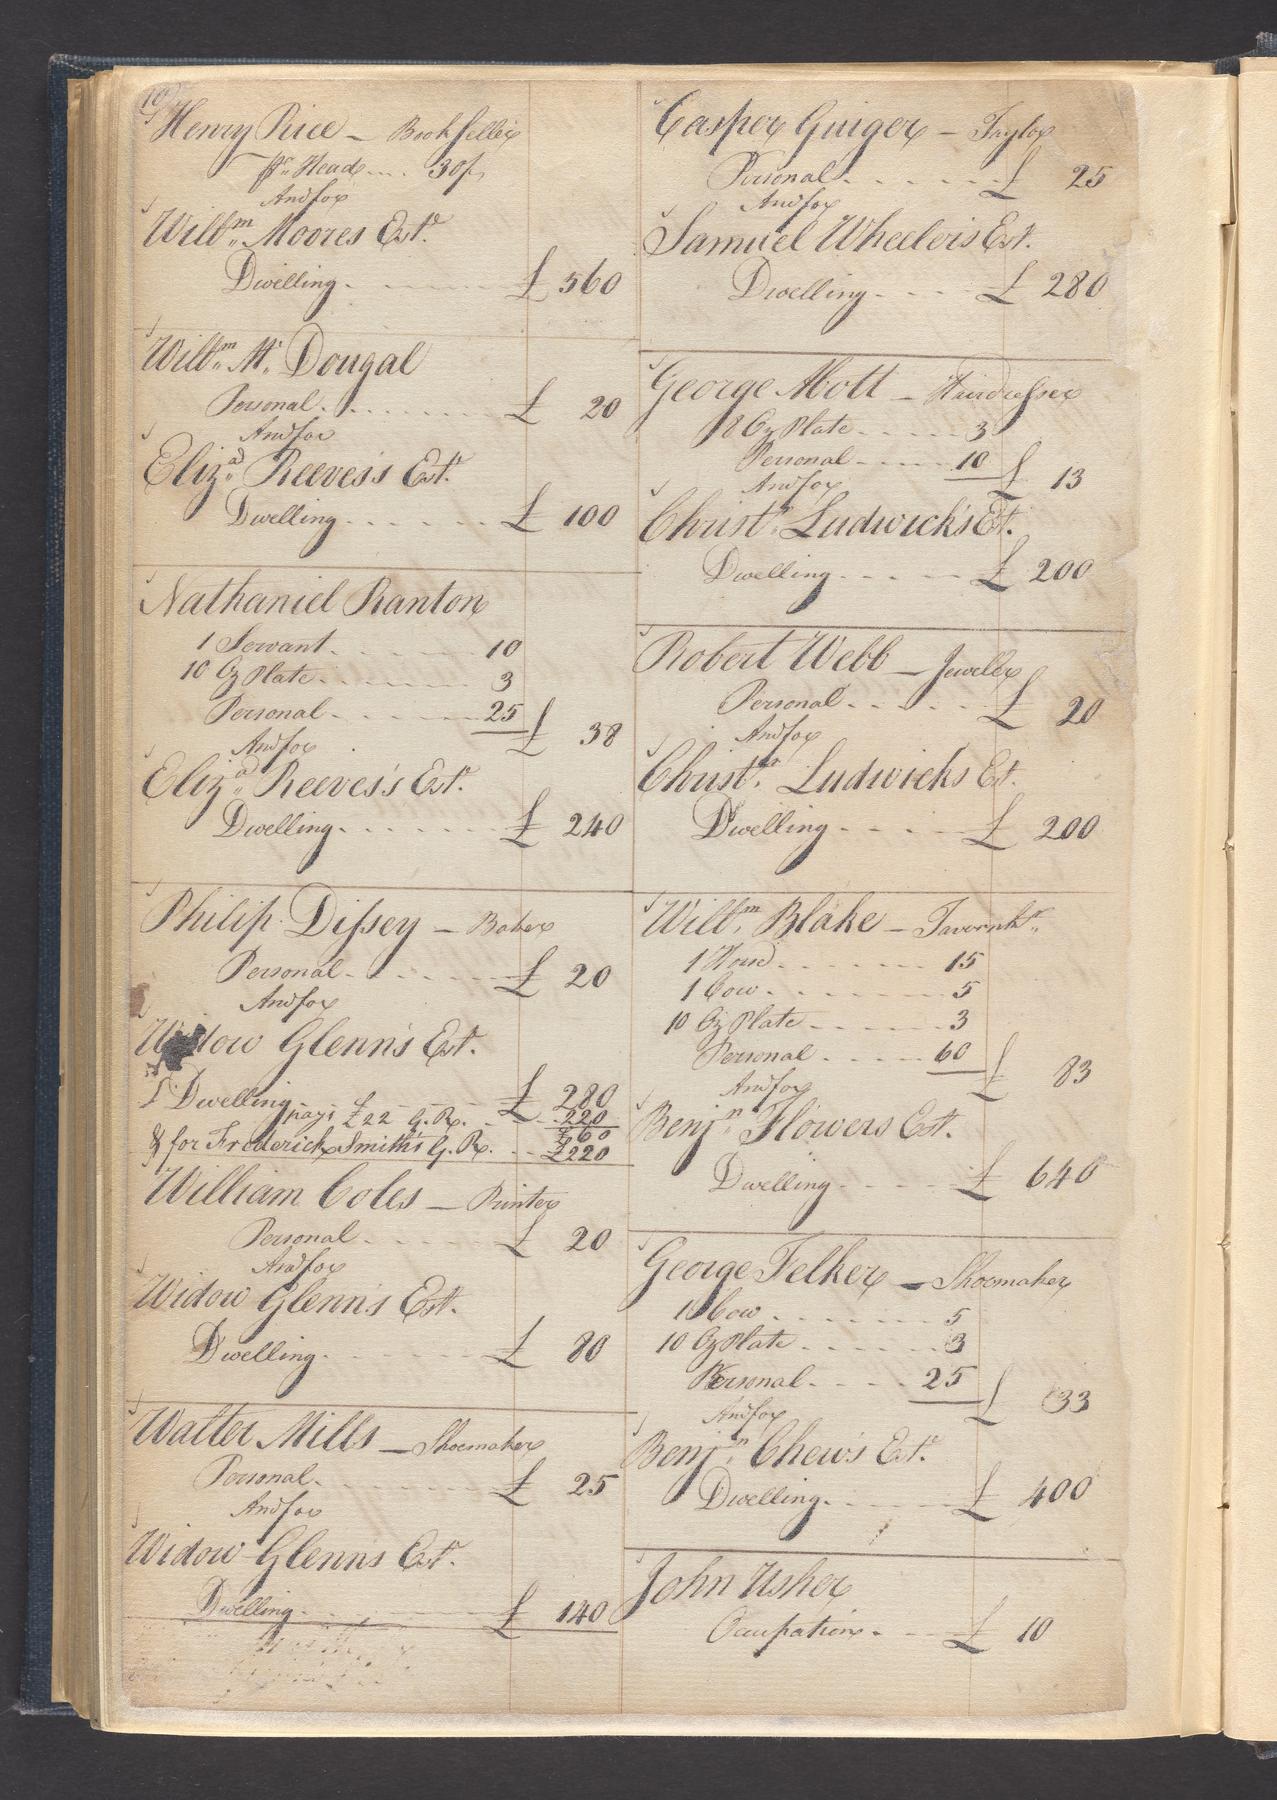 10
Henry Rice — Bookseller
pr. Head .... 30/
And for
Willm. Moores Estt.
Dwelling - - - £ 560
Willm. Mc. Dougal
Personal - - - £ 20
And for
Elizad. Reeves's Estt.
Dwelling - - - £ 100
Nathaniel Ranton
1 Servant - - - 10
10 Oz Plate - - - 3
Personal - - - 25 £ 38
And for
Elizad. Reeves's Estt.
Dwelling - - - £ 240
Philip Dissey — Baker
Personal - - - £ 20
And for
Widow Glenn's Est.
Dwelling - - - £ 280
pays £22 G. R. - - - 220
£60
& for Frederick Smith's G. R. - - £220
William Coles — Printer
Personal - - - £ 20
And for
Widow Glenn's Est.
Dwelling - - - £ 80
Walter Mills — Shoemaker
Personal - - - £ 25
And for
Widow Glenns Estt.
Dwelling - - - £ 140
Casper Guiger — Taylor
Personal - - - £ 25
And for
Samuel Wheelers Est.
Dwelling - - - £ 280
George Mott — Hairdresser
8 Oz Plate - - - 3
Personal - - - 10 £ 13
And for
Christr. Ludwick's Est.
Dwelling - - - £ 200
Robert Webb — Jeweller
Personal - - - £ 20
And for
Christr. Ludwicks Est.
Dwelling - - - £ 200
Willm. Blake — Tavernkr.
1 Horse - - - 15
1 Cow - - - 5
10 Oz Plate - - - 3
Personal - - - 60 £ 83
And for
Benjn. Flowers Est.
Dwelling - - - £ 640
George Felker — Shoemaker
1 Cow - - - 5
10 Oz Plate - - - 3
Personal - - - 25 £ 33
And for
Benjn. Chew's Estt.
Dwelling - - - £ 400
John Usher
Ocupation - - - £ 10